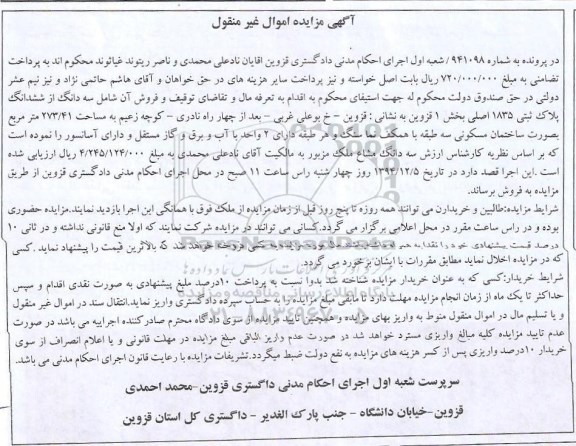 آگهی مزایده اموال غیر منقول
در پرونده به شماره ۹۴۱۰۹۸ / شعبه اول اجرای احکام مدنی دادگستری قزوین اقایان نادعلی محمدی و ناصر ریتوند غیاثوند محکوم اند به پرداخت
تضامنی به مبلغ ۷۲۰/۰۰۰/۰۰۰ ریال بابت اصل خواسته و نیز پرداخت سایر هزینه های در حق خواهان و آقای هاشم حاتمی نژاد و نیز نیم عشر
دولتی در حق صندوق دولت محکوم له جهت استیفای محکوم به اقدام به تعرفه مال و تقاضای توقیف و فروش آن شامل سه دانگ از ششدانگ
پلاک ثبتی ۱۸۳۵ اصلی بخش ۱ قزوین به نشانی : قزوین - خ بوعلی غربی - بعد از چهار راه نادری - کوچه زعیم به مساحت ۲۷۳/۴۱ متر مربع
بصورت ساختمان مسکونی سه طبقه با همکف ملک و هر طبقه دارای ۲ واحد با آب و برق و گاز مستقل و دارای آسانسور را نموده است
که بر اساس نظریه کارشناس ارزش سه دانگ مشاع ملک مزبور به مالکیت آقای نادعلی محمدی به مبلغ ۴/۲۴۵/۱۲۴/۰۰۰ ریال ارزیابی شده
است .این اجرا قصد دارد در تاریخ ۱۳۹۴/۱۲/۵ روز چهار شنبه راس ساعت ۱۱ صبح در محل اجرای احکام مدنی دادگستری قزوین از طریق
مزایده به فروش برساند.
شرایط مزایده:طالبین و خریدارن می توانند همه روزه تا پنج روز قبل از زمان مزایده از ملک فوق با همانگی این اجرا بازدید نمایند.مزایده حضوری
بوده و در راس ساعت مقرر در محل اعلامی برگزار می گردد.کسانی می توانند در مزایده شرکت نمایند که اولا منع قانونی نداشته و در ثانی ۱۰
درصد قیمت پیشنهادی خود را نقدا به همراه بالاترین قیمت را پیشنهاد نماید .کسی
که در مزایده اخلال نماید مطابق مقررات با ایشان برخورد می گردد.
شرایط خریدار:کسی که به عنوان خریدار مزایده شناخته شد بدوا نسبت به پرداخت ۱۰درصد ملبغ پیشنهادی به صورت نقدی اقدام و سپس
حداکثر تا یک ماه از زمان انجام مزایده مهلت دارد تا مابقی مبلغ مزایده را به حساب سپرده دادگستری واریز نماید.انتقال سند در اموال غیر منقول
و یا تسلیم مال در اموال منقول منوط به واریز بهای مزایده و همچنین تایید مزایده از سوی دادگاه محترم صادر کننده اجراییه می باشد در صورت
عدم تایید مزایده کلیه مبالغ واریزی مسترد خواهد شد در صورت عدم واریز الباقی مبلغ مزایده در مهلت قانونی و یا اعلام انصراف از سوی
خریدار ۱۰درصد واریزی پس از کسر هزینه های مزایده به نفع دولت ضبط میگردد.تشریفات مزایده با رعایت قانون اجرای احکام مدنی می باشد.
سرپرست شعبه اول اجرای احکام مدنی داگستری قزوین-محمد احمدی
قزوین-خیابان دانشگاه - جنب پارک الغدیر - داگستری کل استان قزوین